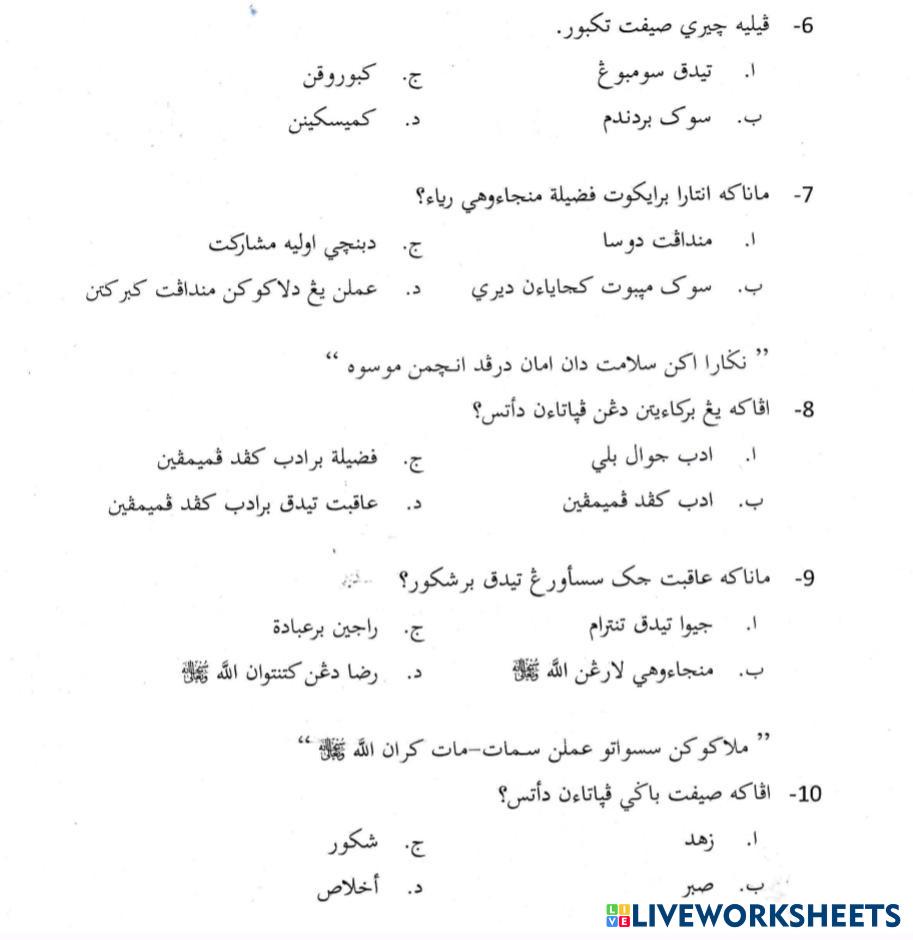 6- ڤيليه چيري صيفت تكبور.
ا. تيدق سومبوڠ ج. كبوروقن
ب. سوک بردندم د. كميسكينن
7- ماناكه انتارا برايكوت فضيلة منجاءوهي رياء؟
ا. منداڤت دوسا ج. دبنچي اوليه مشاركت
ب. سوک مڽبوت كجاياءن ديري د. عملن يڠ دلاكوكن منداڤت كبركتن
” نݢارا اكن سلامت دان امان درڤد انچمن موسوه “
8- اڤاكه يڠ بركاءيتن دڠن ڤڽاتاءن دأتس؟
ا. ادب جوال بلي ج. فضيلة برادب كڤد ڤميمڤين
ب. ادب كڤد ڤميمڤين د. عاقبت تيدق برادب كڤد ڤميمڤين
9- ماناكه عاقبت جک سسأورڠ تيدق برشكور؟
ا. جيوا تيدق تنترام ج. راجين برعبادة
ب. منجاءوهي لارڠن الله ﷻ د. رضا دڠن كتنتوان الله ﷻ
” ملاكوكن سسواتو عملن سمات-مات كران الله ﷻ “
10- اڤاكه صيفت باݢي ڤڽاتاءن دأتس؟
ا. زهد ج. شكور
ب. صبر د. أخلاص
LIVE LIVEWORKSHEETS